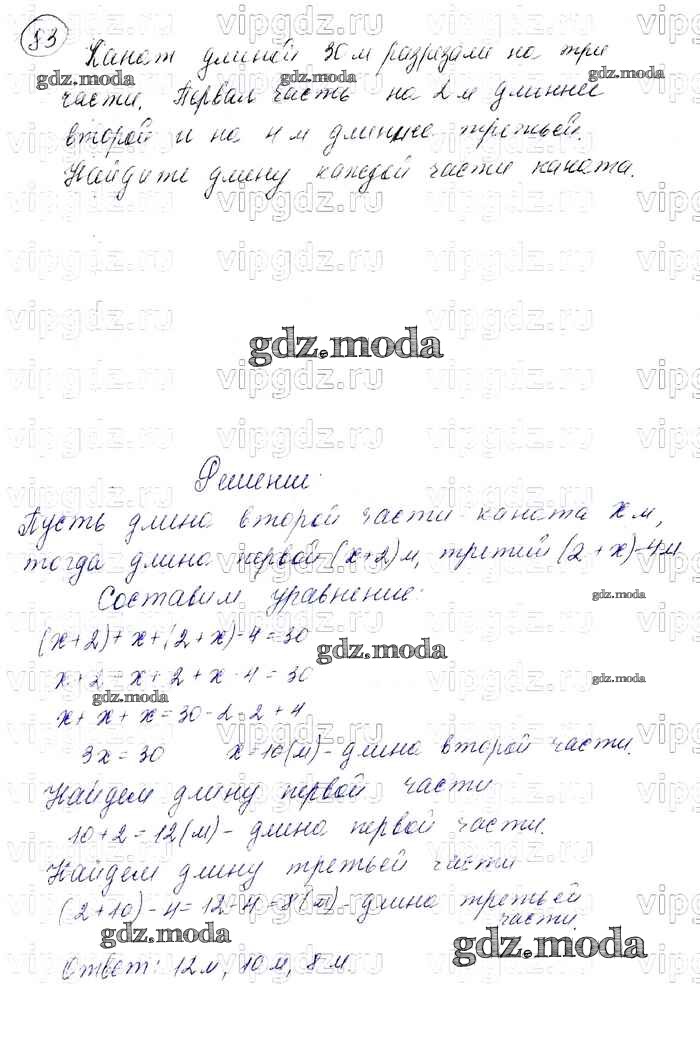 83
Канат длиной 30 м разрезали на три
части. Первая часть на 2 м длиннее
второй и на 4 м длиннее третьей.
Найдите длину каждой части каната.
gdz.moda
Решение:
Пусть длина второй части каната x м,
тогда длина первой (x+2) м, третий (2+x)-4 м
Составим уравнение:
(x+2)+x+(2+x)-4=30
x+2+x+2+x-4=30
x+x+x=30-2-2+4
3x=30 x=10(м)-длина второй части.
Найдем длину первой части
10+2=12(м)-длина первой части.
Найдем длину третьей части
(2+10)-4=12-4=8(м)-длина третьей
части.
Ответ: 12м, 10м, 8м.
gdz.moda